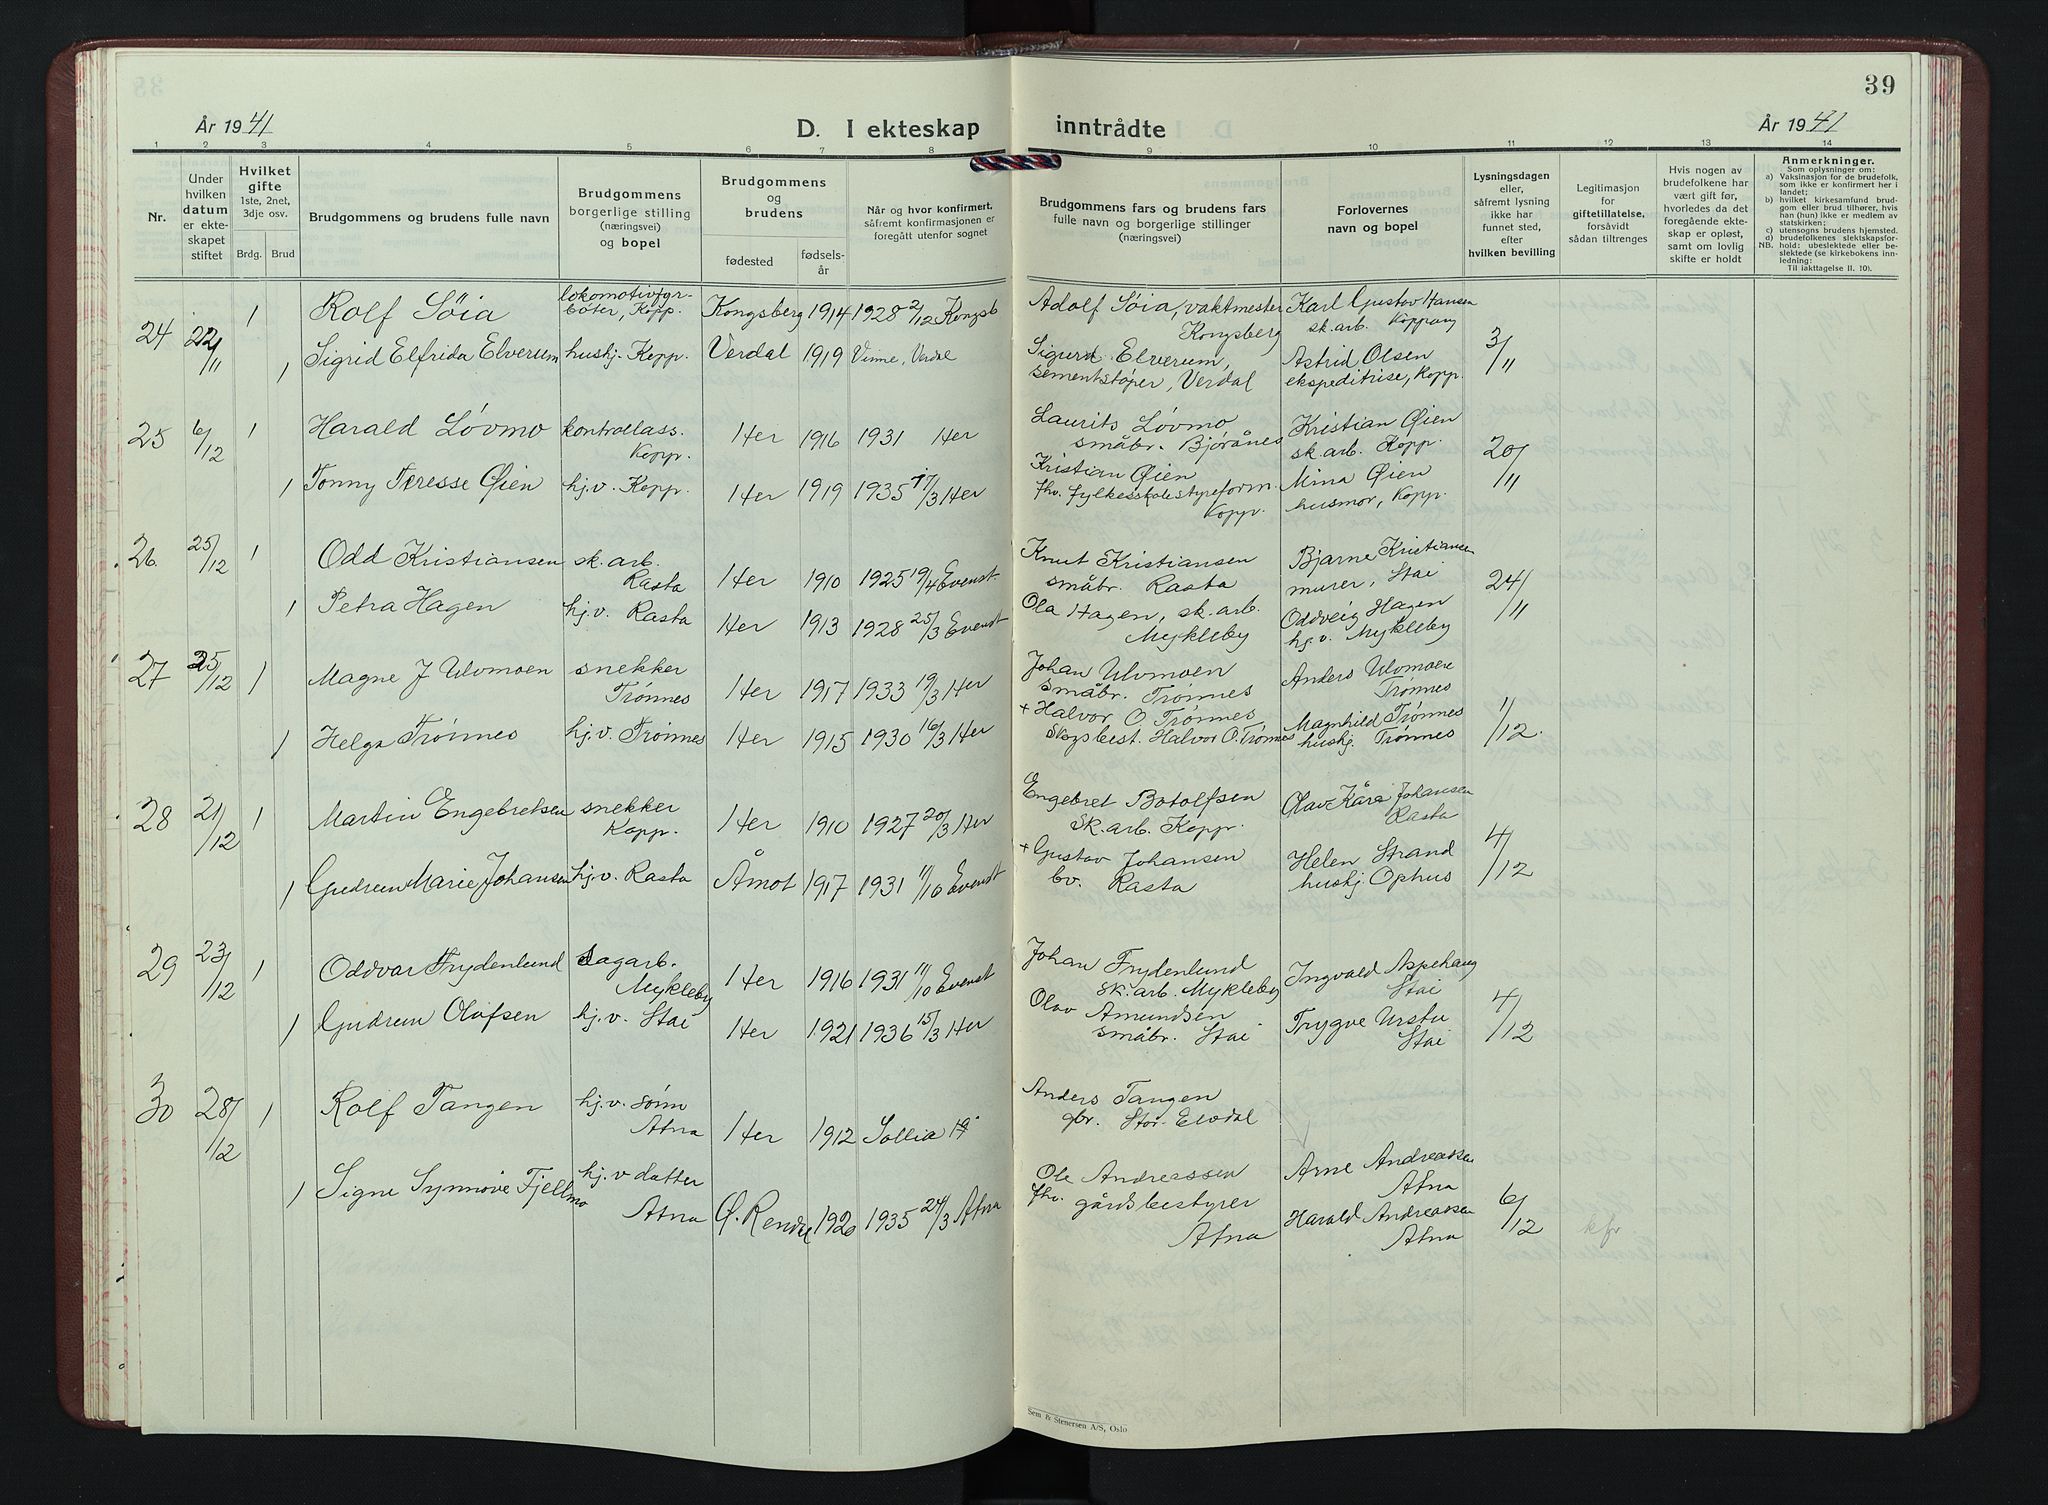 39
År 1941
D. I ekteskap inntrådte
År 1941
1 2 3 4 5 6 7 8 9 10 11 12 13 14
Nr.
Under hvilken datum er ekteskapet stiftet
Hvilket gifte 1ste, 2net, 3dje osv.
Brdg. Brud
Brudgommens og brudens fulle navn
Brudgommens borgerlige stilling (næringsvei) og bopel
Brudgommens og brudens
fødested
fødselsår
Når og hvor konfirmert, såfremt konfirmasjonen er foregått utenfor sognet
Brudgommens fars og brudens fars fulle navn og borgerlige stillinger (næringsvei)
Forlovernes navn og bopel
Lysningsdagen eller, såfremt lysning ikke har funnet sted, efter hvilken bevilling
Legitimasjon for giftetillatelse, forsåvidt sådan tiltrenges
Hvis nogen av brudefolkene har vært gift før, hvorledes da det foregående ekteskap er opløst, samt om lovlig skifte er holdt
Anmerkninger.
Som oplysninger om:
a) Vaksinasjon for de brudefolk, som ikke er konfirmert her i landet;
b) hvilket kirkesamfund brudgom eller brud tilhører, hvis han (hun) ikke er medlem av statskirken;
c) utensogns brudens hjemsted.
d) brudefolkenes slektskapsforhold: ubeslektede eller beslektede (se kirkebokens innledning:
NB.
Til iakttagelse II. 10).
24 22/11 1 Rolf Söia lokomotivfyrböter, Kopp. Kongsberg 1914 1928 2/12 Kongsb Adolf Söia, vaktmester Kongsberg Karl Gustav Hansen sk.arb. Koppang
1 Sigrid Elfrida Elverum hushj. Kopp. Verdal 1919 Vinne, Verdal Sigurd Elverum, sementstöper, Verdal Astrid Olsen ekspeditrise, Kopp. 3/11
25 6/12 1 Harald Lövmo kontrollass. Kopp. Her 1916 1931 Her Laurits Lövmo småbr. Bjørånes Kristian Øien sk.arb. Kopp.
1 Tonny Teresse Øien hj.v. Kopp. Her 1919 1935 17/3 Her Kristian Øien fhv. fylkesskolestyreform. Kopp. Mina Øien husmor, Kopp. 20/11
26. 25/12 1 Odd Kristiansen sk. arb. Rasta Her 1910 1925 19/4 Evenst. Knut Kristiansen småbr. Rasta Bjarne Kristiansen murer, Stai
1 Petra Hagen hj.v. Rasta Her 1913 1928 25/3 Evenst Ola Hagen, sk.arb. Mykleby Oddveig Hagen hj.v. Mykleby 24/11
27 25/12 1 Magne J Ulvmoen snekker Trönnes Her 1917 1933 19/3 Her Johan Ulvmoen småbr. Trönnes Anders Ulvmoen Trönnes
1 Helga Trönnes hj.v. Trönnes Her 1915 1930 16/3 Her + Halvor O. Trönnes, Skogsbest. Halvor O. Trönnes Magnhild Trönnes huskj. Trönnes 1/12.
28 21/12 1 Martin Engebretsen snekker Kopp. Her 1910 1927 20/3 Her Engebret Botolfsen sk.arb. Kopp. Olav Kåre Johansen Rasta
1 Gudrun Marie Johansen hj.v. Rasta Åmot 1917 1931 11/10 Evenst + Gustav Johansen bv. Rasta Helen Strand huskj. Ophus 4/12
29 23/12 1 Oddvar Frydenlund sagarb. Mykleby Her 1916 1931 11/10 Evenst Johan Frydenlund sk.arb. Mykleby Ingvald Aspehaug Stai
1 Gudrun Olafsen hj.v. Stai Her 1921 1936 15/3 Her Olav Amundsen småbr. Stai Trygve Ursta Stai 4/12
30 28/12 1 Rolf Tangen hj.v. sønn Atna Her 1912 Sollia 19 Anders Tangen gbr. Stor-Elvdal Arne Andreassen Atna
1 Signe Synnöve Fjellmo hj.v datter Atna Ø. Rendal 1920 1935 24/3 Atna Ole Andreassen fhv. gårdsbestyrer Atna Harald Andreassen Atna 6/12 kfr
Sem & Stenersen A/S, Oslo